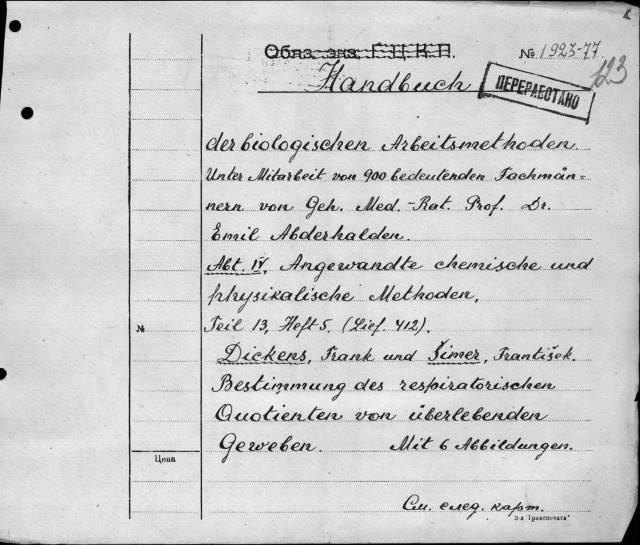 Обяз. экз. Г.Ц.К.П.
№ 1923-77
123
Handbuch
ПЕРЕРАБОТАНО
der biologischen Arbeitsmethoden
Unter Mitarbeit von 900 bedeutenden Fachmän=
nern von Geh. Med.-Rat. Prof. Dr.
Emil Abderhalden.
Abt. IV, Angewandte chemische und
physikalische Methoden,
№
Teil 13, Heft 5. (Lief. 412).
Dickens, Frank und Šimer, František.
Bestimmung des respiratorischen
Quotienten von überlebenden
Geweben. Mit 6 Abbildungen.
Цена
См. след. карт.
3-я Транспечать